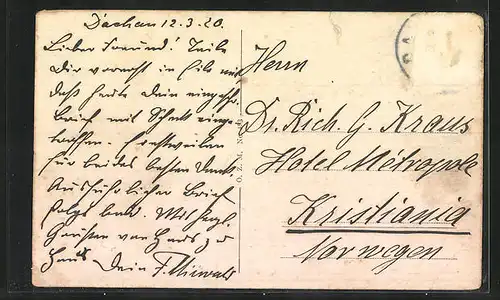 Dachau 12.3.20.
Lieber Freund! Teile
Dir vorerst in Eile mit
daß heute Dein eingeschr.
Brief mit Scheck einge-
troffen. Einstweilen
für beides besten Dank.
Ausführlicher Brief
folgt bald. Mit herzl.
Grüssen von Haus zu
Haus Dein
Herrn
Dr. Rich. G. Kraus
Hotel Métropole
Kristiania
Norwegen